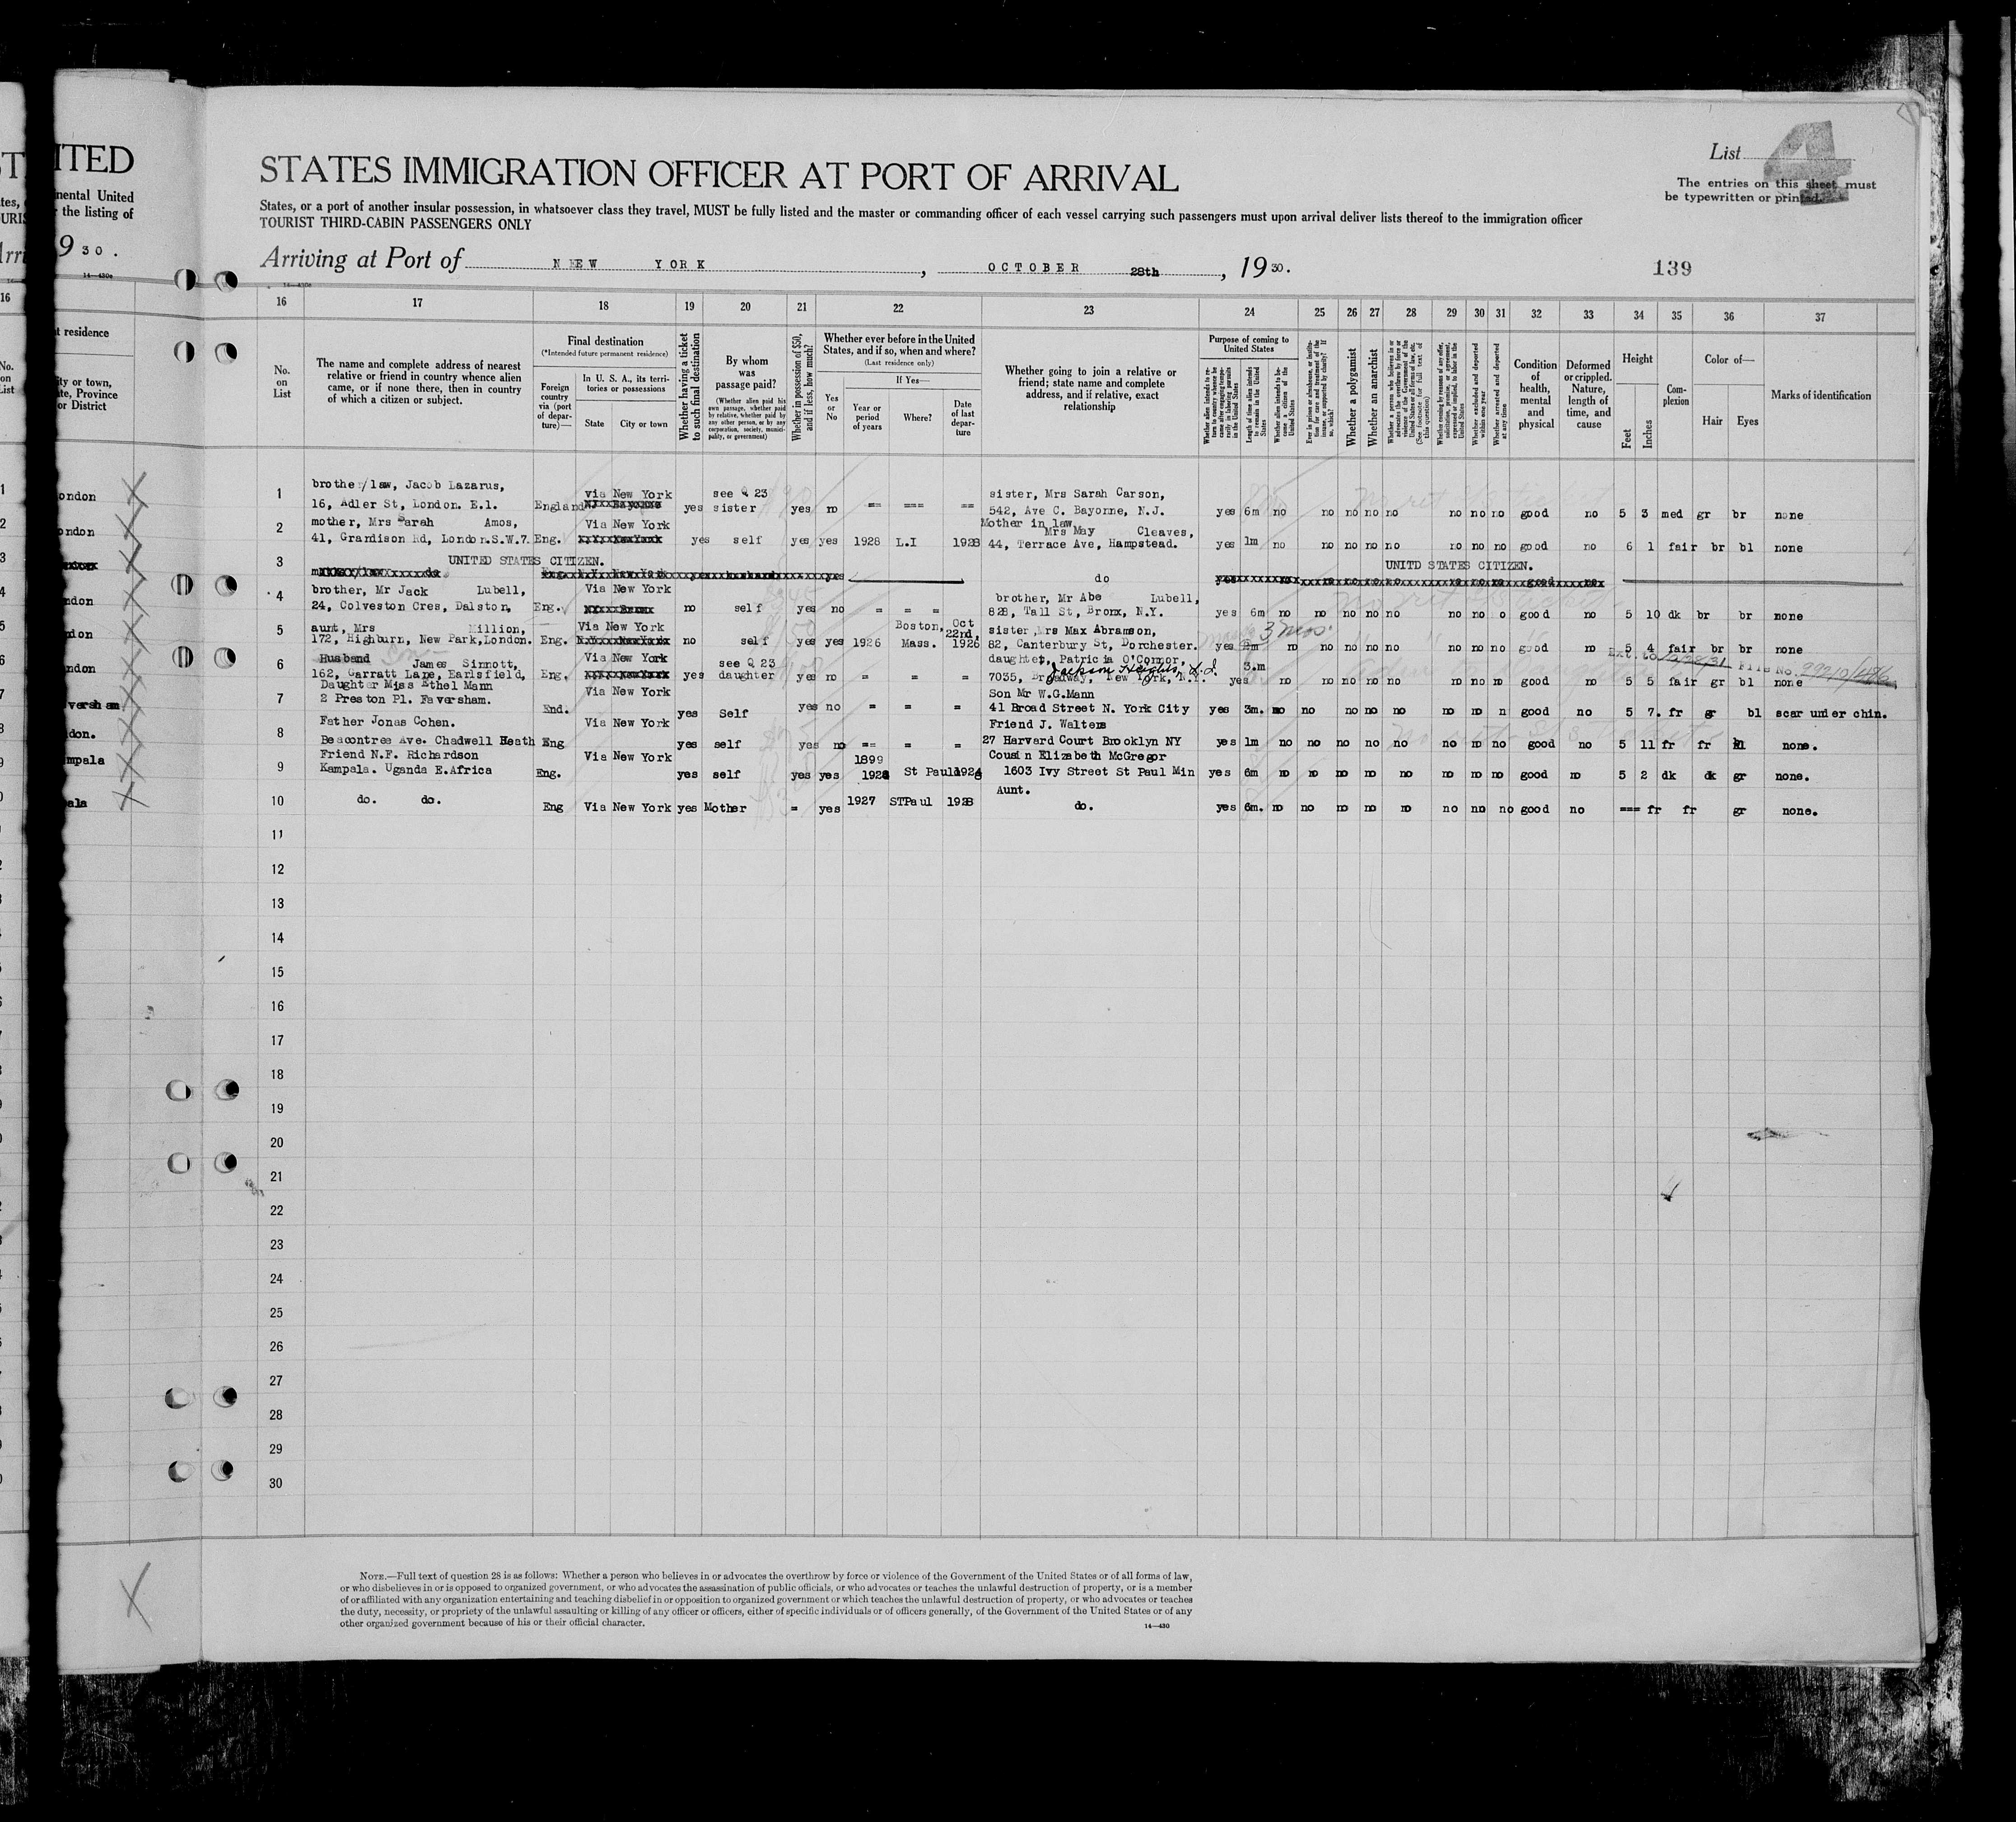 ITED
STATES IMMIGRATION OFFICER AT PORT OF ARRIVAL
List
4
The entries on this sheet must
be typewritten or printed.
inental United
the listing of
States, or a port of another insular possession, in whatsoever class they travel, MUST be fully listed and the master or commanding officer of each vessel carrying such passengers must upon arrival deliver lists thereof to the immigration officer
TOURIST THIRD-CABIN PASSENGERS ONLY
930.
Arriving at Port of NEW YORK, OCTOBER 28th, 1930.
139
14—430c
16 17 18 19 20 21 22 23 24 25 26 27 28 29 30 31 32 33 34 35 36 37
No. on List
The name and complete address of nearest relative or friend in country whence alien came, or if none there, then in country of which a citizen or subject.
Final destination
(*Intended future permanent residence)
Foreign country via (port of departure)—
In U. S. A., its territories or possessions
State City or town
Whether having a ticket to such final destination
By whom was passage paid?
(Whether alien paid his own passage, whether paid by relative, whether paid by any other person, or by any corporation, society, municipality, or government)
Whether in possession of $50, and if less, how much?
Whether ever before in the United States, and if so, when and where?
(Last residence only)
Yes or No
If Yes—
Year or period of years
Where?
Date of last departure
Whether going to join a relative or friend; state name and complete address, and if relative, exact relationship
Purpose of coming to United States
Whether a polygamist
Whether an anarchist
Condition of health, mental and physical
Deformed or crippled. Nature, length of time, and cause
Height
Feet Inches
Complexion
Color of—
Hair Eyes
Marks of identification
1 brother/law, Jacob Lazarus, via New York see Q 23 sister, Mrs Sarah Carson,
16, Adler St, London. E.1. England yes sister yes no == === == 542, Ave C. Bayonne, N.J. yes 6m no no no no no no no no good no 5 3 med gr br none
2 mother, Mrs Sarah Amos, Via New York Mother in law Mrs May Cleaves,
41, Grandison Rd, London.S.W.7. Eng. yes self yes yes 1928 L.I 1928 44, Terrace Ave, Hampstead. yes 1m no no no no no no no no good no 6 1 fair br bl none
3 UNITED STATES CITIZEN. do UNITD STATES CITIZEN.
4 brother, Mr Jack Lubell, Via New York brother, Mr Abe Lubell,
24, Colveston Cres, Dalston, Eng. no self yes no = = = 828, Tall St, Bronx, N.Y. yes 6m no no no no no no no o good no 5 10 dk br br none
5 aunt, Mrs Million, Via New York Boston, Oct 22nd, sister, Mrs Max Abramson, 3 mos.
172, Highburn, New Park, London. Eng. no self yes yes 1926 Mass. 1926 82, Canterbury St, Dorchester. yes no no no no no no no no good no 5 4 fair br br none
6 Husband James Sinnott, Via New York see Q 23 daughter, Patricia O'Connor, Jackson Heights, L.I. Ext. to File No.
162, Garratt Lane, Earlsfield, Eng. yes daughter yes no = = = 7035, Broadway, New York, N.Y. yes 3.m no no no no no no no no good no 5 5 fair gr bl none
7 Daughter Miss Ethel Mann Via New York Son Mr W.G.Mann
2 Preston Pl. Faversham. End. yes Self yes no = = = 41 Broad Street N. York City yes 3m. no no no no no no no n good no 5 7. fr gr bl scar under chin.
8 Father Jonas Cohen. Via New York Friend J. Walters
Beacontree Ave. Chadwell Heath Eng yes self yes no == = = 27 Harvard Court Brooklyn NY yes 1m no no no no no no no no good no 5 11 fr fr none.
9 Friend N.F. Richardson Via New York 1899 Cousin Elizabeth McGregor
Kampala. Uganda E.Africa Eng. yes self yes yes 1924 St Paul 1924 1603 Ivy Street St Paul Min yes 6m no no no no no no no no good no 5 2 dk dk gr none.
10 do. do. Eng Via New York yes Mother = yes 1927 STPaul 1928 Aunt. do. yes 6m. no no no no no no no no good no === fr fr gr none.
11
12
13
14
15
16
17
18
19
20
21
22
23
24
25
26
27
28
29
30
NOTE.—Full text of question 28 is as follows: Whether a person who believes in or advocates the overthrow by force or violence of the Government of the United States or of all forms of law,
or who disbelieves in or is opposed to organized government, or who advocates the assassination of public officials, or who advocates or teaches the unlawful destruction of property, or is a member
of or affiliated with any organization entertaining and teaching disbelief in or opposition to organized government or which teaches the unlawful destruction of property, or who advocates or teaches
the duty, necessity, or propriety of the unlawful assaulting or killing of any officer or officers, either of specific individuals or of officers generally, of the Government of the United States or of any
other organized government because of his or their official character.
14—430